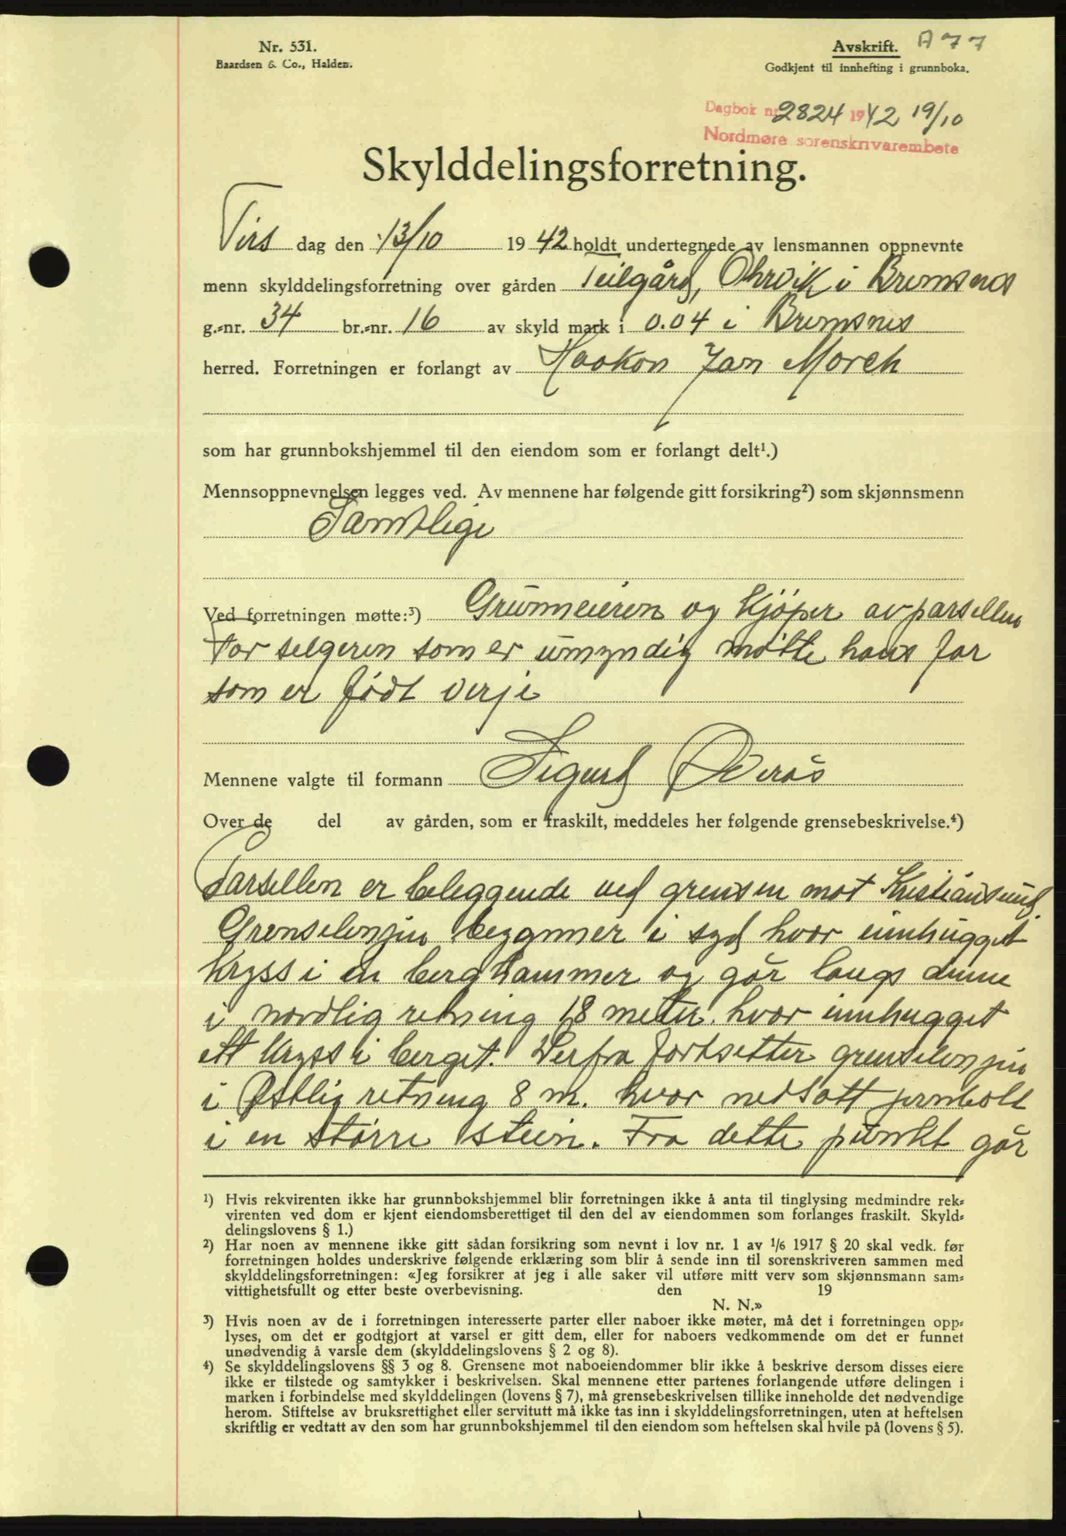 Nr. 531.
Baardsen & Co., Halden.
Avskrift. A77
Godkjent til innhefting i grunnboka.
Dagbok nr. 2824 1942 19/10
Nordmøre sorenskrivarembete
Skylddelingsforretning.
Tirs dag den 13/10 1942 holdt undertegnede av lensmannen oppnevnte
menn skylddelingsforretning over gården Teilgård, Ohrvik i Bremsnes
g.-nr. 34 br.-nr. 16 av skyld mark i 0.04 i Bremsnes
herred. Forretningen er forlangt av Haakon Jan Morch
som har grunnbokshjemmel til den eiendom som er forlangt delt¹.)
Mennsoppnevnelsen legges ved. Av mennene har følgende gitt forsikring²) som skjønnsmenn
Samtlige
Ved forretningen møtte:³) Grunneieren og kjöper av parsellen
For selgeren som er umyndig møtte hans far
som er født verje
Mennene valgte til formann Sigurd Øverås
Over de del av gården, som er fraskilt, meddeles her følgende grensebeskrivelse.⁴)
Parsellen er beleggende ved grensen mot Kristiansund.
Grenselinjen begynner i syd hvor innhugget
kryss i en berghammer og går langs denne
i nordlig retning 18 meter. hvor innhugget
ett kryss i berget. Derfra fortsetter grenselinjen
i Østlig retning 8 m. hvor nedsatt jernbolt
i en større stein. Fra dette punkt går
¹) Hvis rekvirenten ikke har grunnbokshjemmel blir forretningen ikke å anta til tinglysing medmindre rek-
virenten ved dom er kjent eiendomsberettiget til den del av eiendommen som forlanges fraskilt. Skyld-
delingslovens § 1.)
²) Har noen av mennene ikke gitt sådan forsikring som nevnt i lov nr. 1 av 1/6 1917 § 20 skal vedk. før
forretningen holdes underskrive følgende erklæring som blir å sende inn til sorenskriveren sammen med
skylddelingsforretningen: «Jeg forsikrer at jeg i alle saker vil utføre mitt verv som skjønnsmann sam-
vittighetsfullt og etter beste overbevisning. den 19
N. N.»
³) Hvis noen av de i forretningen interesserte parter eller naboer ikke møter, må det i forretningen opp-
lyses, om det er godtgjort at varsel er gitt dem, eller for naboers vedkommende om det er funnet
unødvendig å varsle dem (skylddelingslovens § 2 og 8).
⁴) Se skylddelingslovens §§ 3 og 8. Grensene mot naboeiendommer blir ikke å beskrive dersom disses eiere
ikke er tilstede og samtykker i beskrivelsen. Skal mennene etter partenes forlangende utføre delingen i
marken i forbindelse med skylddelingen (lovens § 7), må grensebeskrivelsen tillike inneholde det nødvendige
herom. Stiftelse av bruksrettighet eller servitutt må ikke tas inn i skylddelingsforretningen, uten at heftelsen
skriftlig er vedtatt av den som har grunnbokshjemmel til den eiendom som heftelsen skal hvile på (lovens § 5).